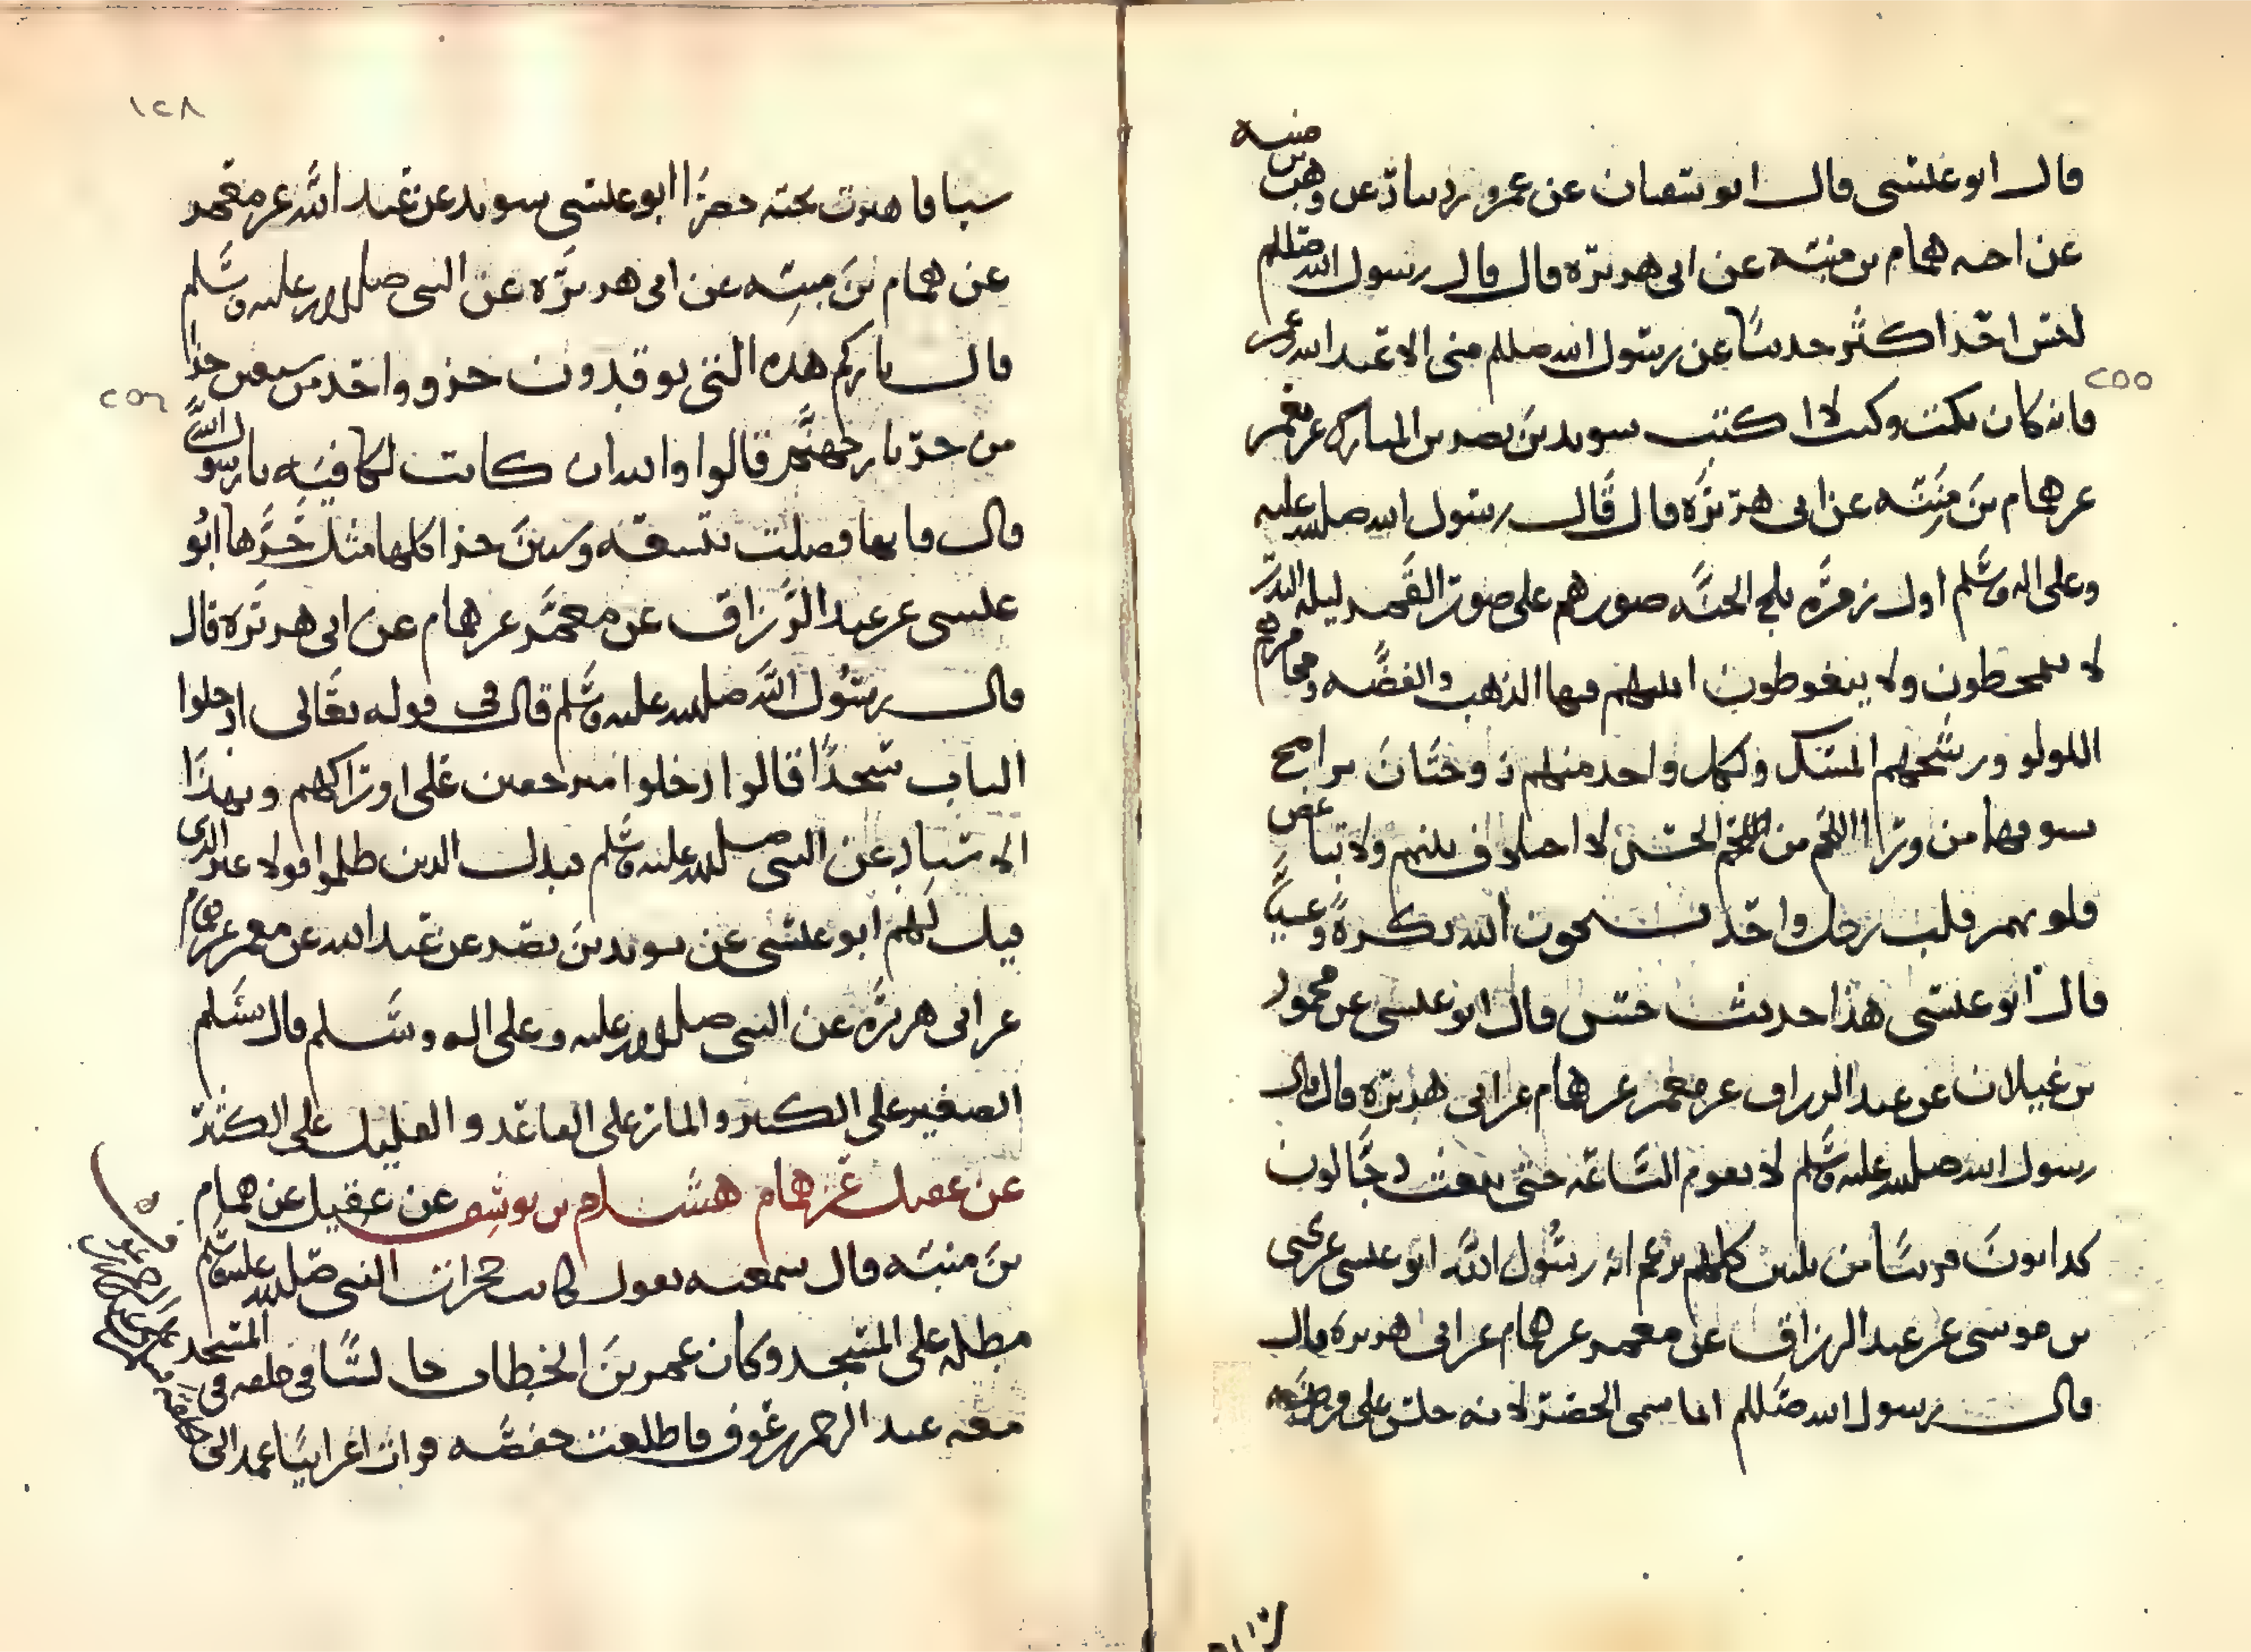 قال ابو عيسى قال ابو سفيان عن عمرو بن دينار عن وهب بن منبه
عن اخيه همام بن منبه عن ابي هريرة قال قال رسول الله صللم
ليس احد اكثر حديثا عن رسول الله صللم مني الا عبد الله بن عمرو
٢٥٥
فانه كان يكتب وكنت لا اكتب سويد بن نصر بن المبارك عن معمر
عن همام بن منبه عن ابي هريرة قال قال رسول الله صلى الله عليه
وعلى اله وسلم اول زمرة تلج الجنة صورهم على صورة القمر ليلة البدر
لا يمتخطون ولا يتغوطون انيتهم فيها الذهب والفضة ومجامرهم
اللولو ورشحهم المسك ولكل واحد منهم زوجتان يرا مخ
سوقهما من ورا اللحم من الحسن لا اختلاف بينهم ولا تباغض
قلوبهم قلب رجل واحد يسبحون الله بكرة وعشيا
قال ابو عيسى هذا حديث حسن قال ابو عيسى عن محمود
بن غيلان عن عبد الرزاق عن معمر عن همام عن ابي هريرة قال قال
رسول الله صلى الله عليه وسلم لا تقوم الساعة حتى ينبعث دجالون
كذابون قريبا من ثلثين كلهم يزعم انه رسول الله ابو عيسى عن يحيى
بن موسى عن عبد الرزاق عن معمر عن همام عن ابي هريرة قال
قال رسول الله صللم انما سمي الخضر لانه جلس على فروة
١٢٨
بيضا فاهتزت تحته خضرا ابو عيسى سويد عن عبد الله عن معمر
عن همام بن منبه عن ابي هريرة عن النبي صلى الله عليه وسلم
قال ناركم هذه التي توقدون جزو واحد من سبعين جزا
٢٥٦
من حر نار جهنم قالوا والله ان كانت لكافية يا رسول الله
قال فانها فضلت بتسعة وستين جزا كلها مثل حرها ابو
عيسى عن عبد الرزاق عن معمر عن همام عن ابي هريرة قال
قال رسول الله صلى الله عليه وسلم قال في قوله تعالى ادخلوا
الباب سجدا قالوا دخلوا متزحفين على اوراكهم وبهذا
الاسناد عن النبي صلى الله عليه وسلم فبدل الذين ظلموا قولا غير الذي
قيل لهم ابو عيسى عن سويد بن نصر عن عبد الله عن معمر عن همام
عن ابي هريرة عن النبي صلى الله عليه وعلى اله وسلم قال يسلم
الصغير على الكبير والمار على القاعد والقليل على الكثير
عن عقيل عن همام هشام بن يوسف عن عقيل عن همام
بن منبه قال سمعته يقول كانت حجرات النبي صلى الله عليه وسلم
مطلة على المسجد وكان عمر بن الخطاب جالسا في حلقة في المسجد
معه عبد الرحمن بن عوف فاطلعت حفصة فرات اعرابيا عمد الى